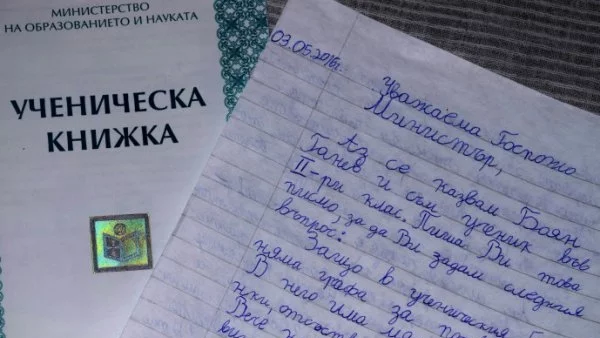 МИНИСТЕРСТВО
НА ОБРАЗОВАНИЕТО И НАУКАТА
УЧЕНИЧЕСКА
КНИЖКА
03.05.2016г.
Уважаема Госпожо
Министър,
Аз се казвам Боян
Ганев и съм ученик във
II-ри клас. Пиша Ви това
писмо, за да Ви задам следния
въпрос:
Защо в ученическия
няма графа за
В него има
Вече